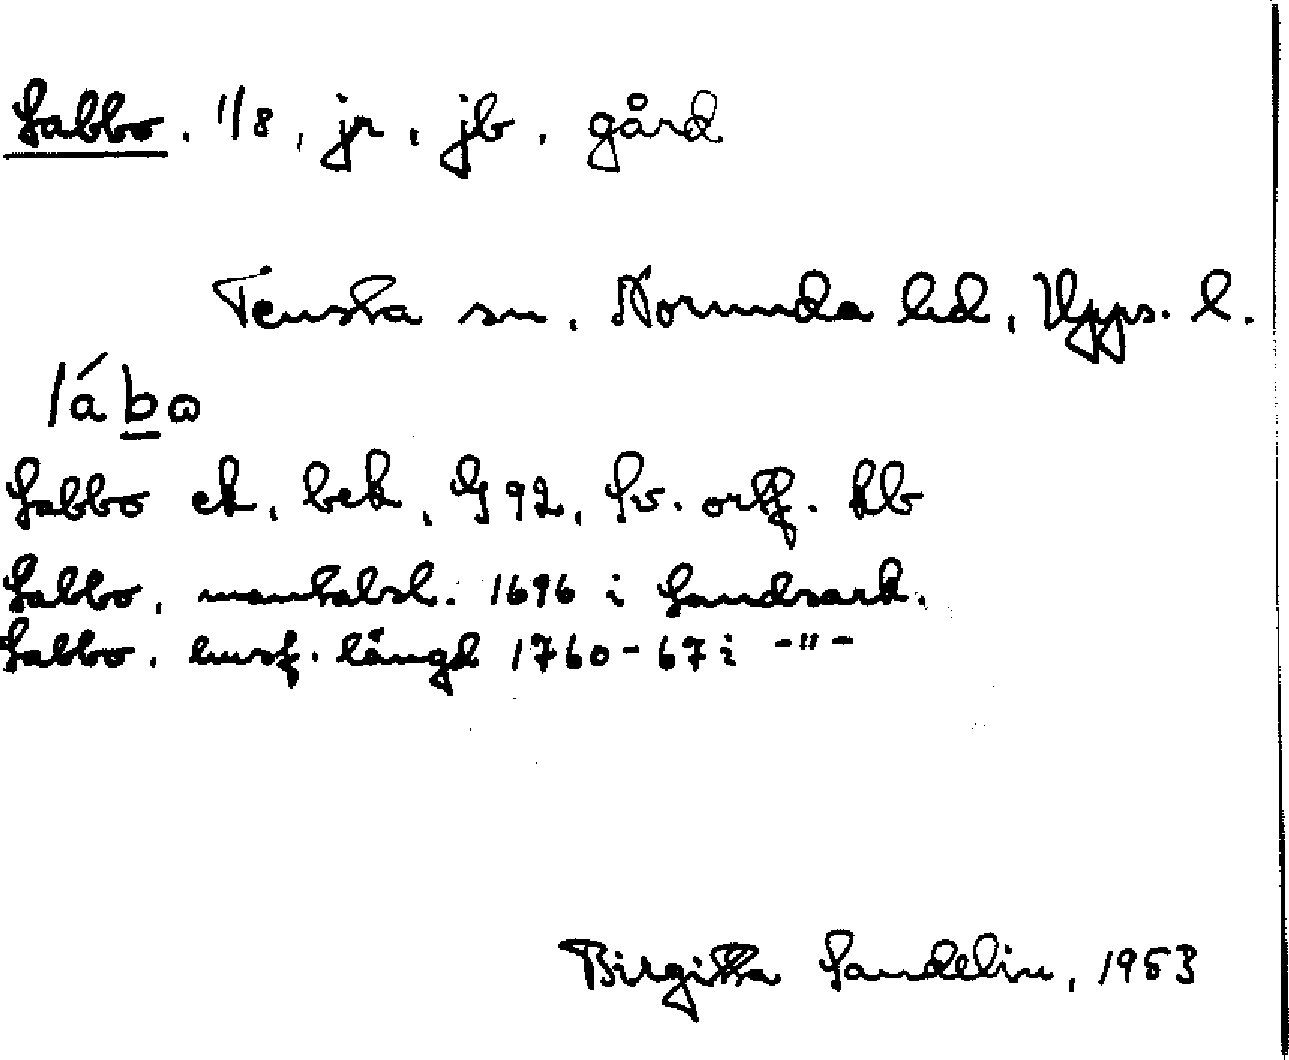 Labbo. 1/8, jr, jb. gård
Tensta sn, Norunda hd, Upps. l.
lábo
Labbo ek. bek, G 92, Sv. ortf. kb
Labbo, mantalsl. 1696 i Landsark.
Labbo, husf. längd 1760-67 i -"-
Birgitta Sandelin, 1953